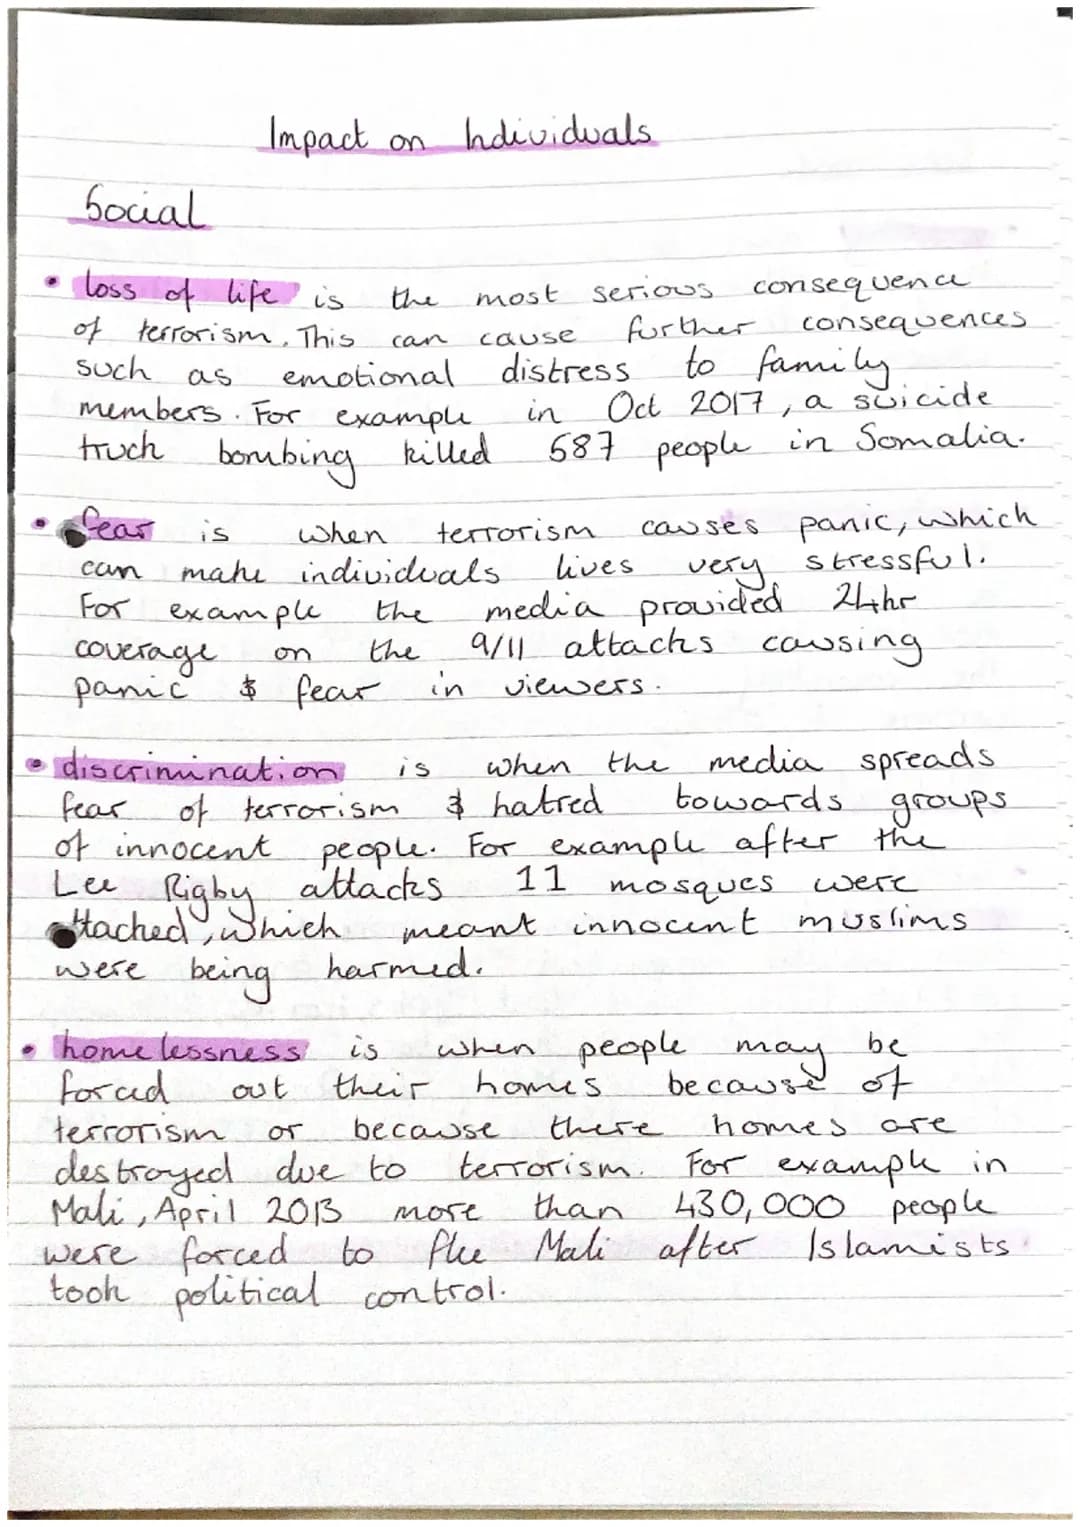 Impact on Individuals
Social
• loss of life is the most serious consequence
of terrorism. This can cause further consequences
such as emotional distress to family
members. For example in Oct 2017, a suicide
truck bombing killed 587 people in Somalia.
• fear is when terrorism causes panic, which
can make individuals lives very stressful.
For example the media provided 24hr
coverage on the 9/11 attacks causing
panic & fear in viewers.
• discrimination is when the media spreads
fear of terrorism & hatred towards groups
of innocent people. For example after the
Lee Rigby attacks 11 mosques were
attacked, which meant innocent muslims
were being harmed.
• homelessness is when people may be
forced out their homes because of
terrorism or because there homes are
destroyed due to terrorism. For example in
Mali, April 2013 more than 430,000 people
were forced to flee Mali after Islamists
took political control.